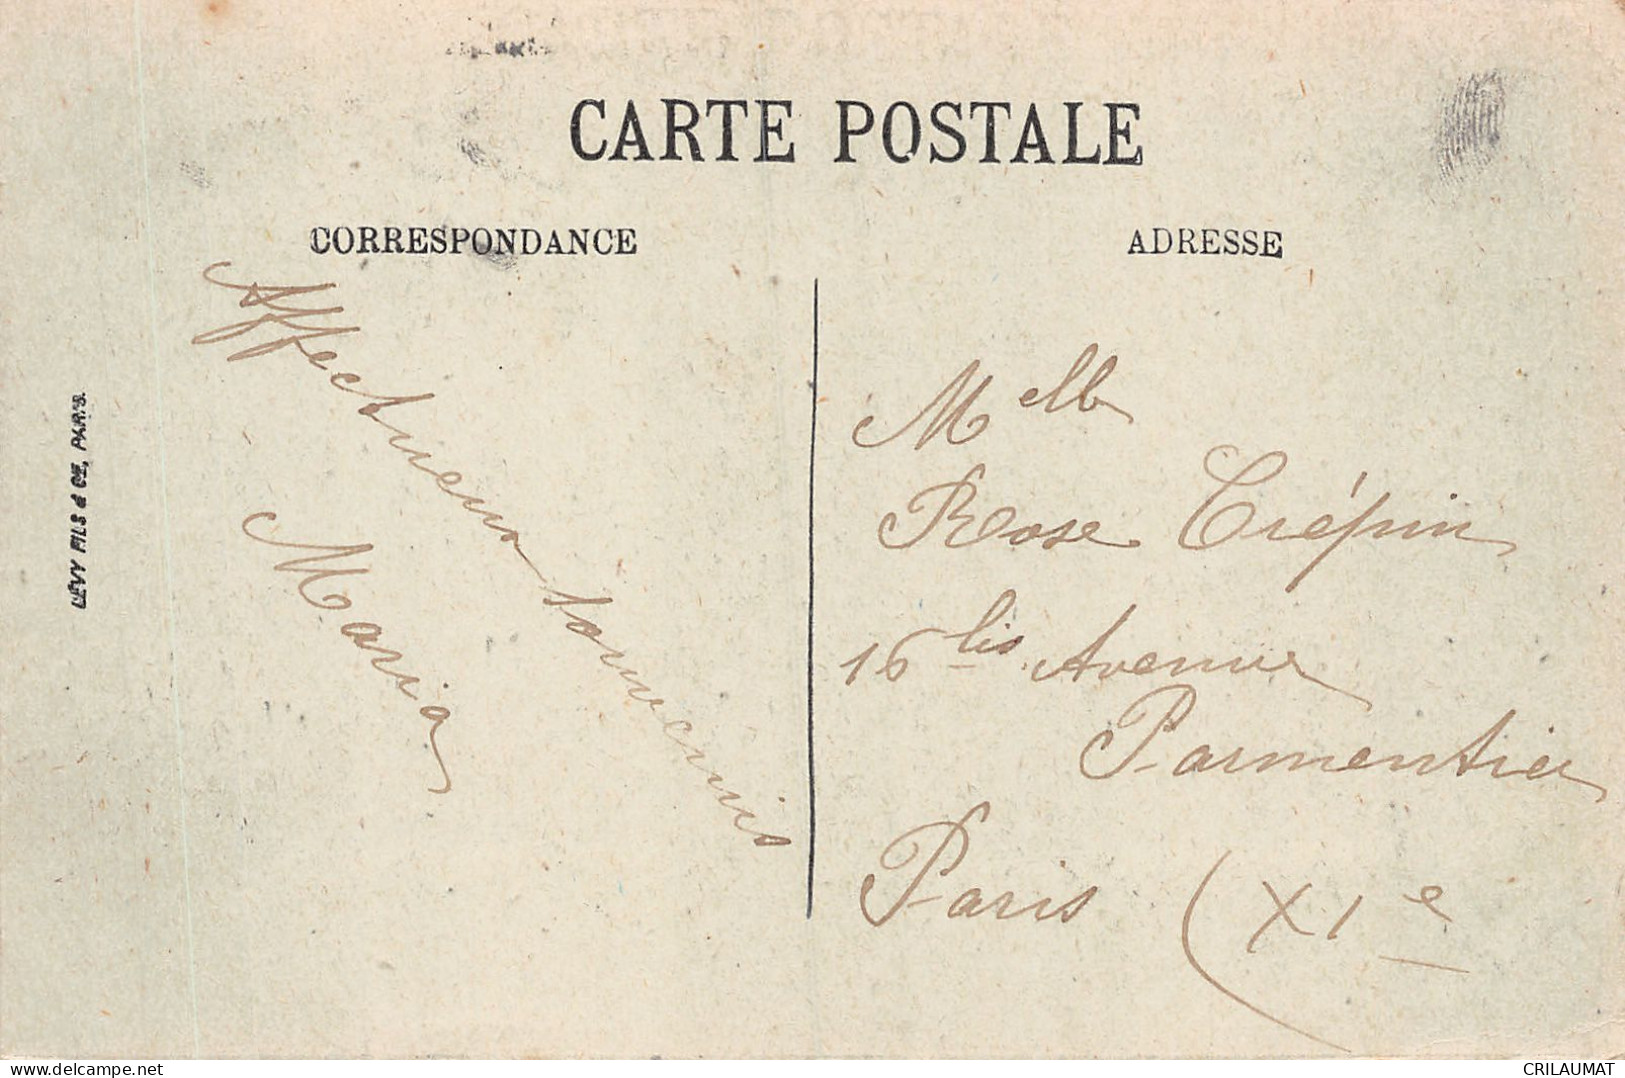 CARTE POSTALE
CORRESPONDANCE
ADRESSE
Affectueux souvenirs
Maria
Melle
Rose Crépin
16 bis Avenue
Parmentier
Paris (XIe
LÉVY FILS & CIE, PARIS.
delcampe.net
CRILAUMAT